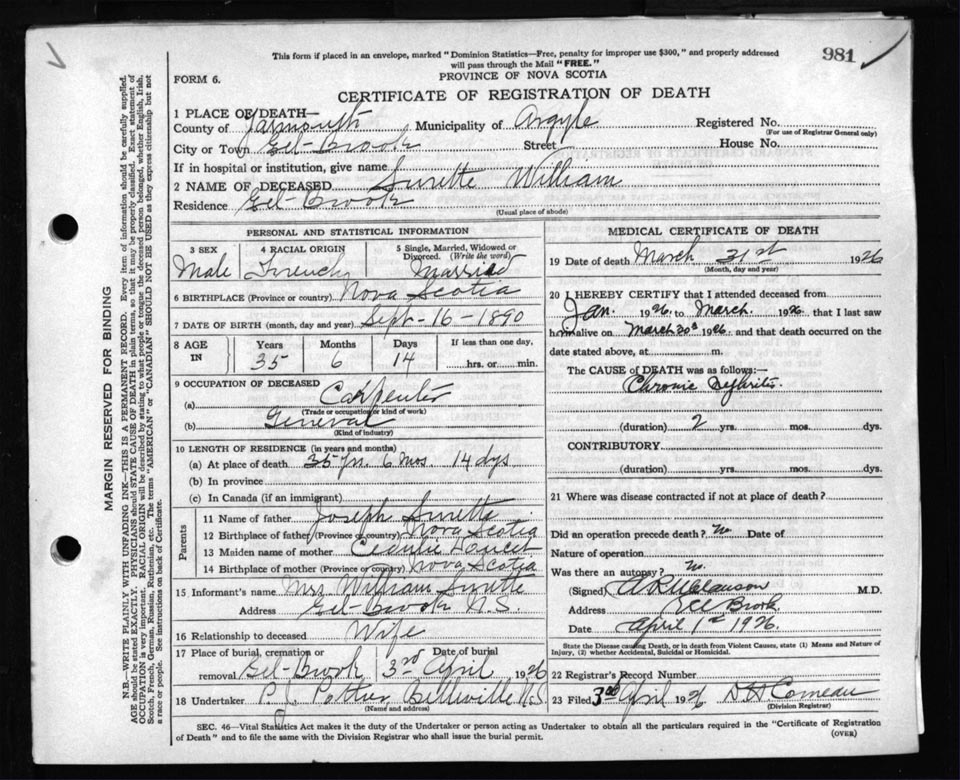 981
This form if placed in an envelope, marked "Dominion Statistics—Free, penalty for improper use $300," and properly addressed
will pass through the Mail "FREE."
FORM 6.
PROVINCE OF NOVA SCOTIA
CERTIFICATE OF REGISTRATION OF DEATH
1 PLACE OF DEATH—
County of Yarmouth Municipality of Argyle Registered No.
(For use of Registrar General only)
City or Town Eel-Brook Street House No.
If in hospital or institution, give name
2 NAME OF DECEASED Surette William
Residence Eel-Brook
(Usual place of abode)
PERSONAL AND STATISTICAL INFORMATION
3 SEX 4 RACIAL ORIGIN 5 Single, Married, Widowed or Divorced. (Write the word)
Male French Married
6 BIRTHPLACE (Province or country) Nova Scotia
7 DATE OF BIRTH (month, day and year) Sept-16-1890
8 AGE IN Years Months Days If less than one day,
35 6 14 hrs. or min.
9 OCCUPATION OF DECEASED
(a) Carpenter
(Trade or occupation or kind of work)
(b) General
(Kind of industry)
10 LENGTH OF RESIDENCE (in years and months)
(a) At place of death 35 yrs. 6 mos. 14 dys
(b) In province
(c) In Canada (if an immigrant)
Parents
11 Name of father Joseph Surette
12 Birthplace of father (Province or country) Nova Scotia
13 Maiden name of mother
14 Birthplace of mother (Province or country) Nova Scotia
15 Informant's name Mrs William Surette
Address Eel-Brook N.S.
16 Relationship to deceased Wife
17 Place of burial, cremation or removal Eel-Brook Date of burial 3rd April 1926
18 Undertaker P. J. Pottier, Belleville N.S.
(Name and address)
MEDICAL CERTIFICATE OF DEATH
19 Date of death March 31st 1926
(Month, day and year)
20 I HEREBY CERTIFY that I attended deceased from
Jan. 1926. to March. 1926. that I last saw
him alive on March 30th 1926. and that death occurred on the
date stated above, at m.
The CAUSE OF DEATH was as follows:—
Chronic Nephritis.
(duration) 2 yrs. mos. dys.
CONTRIBUTORY
(duration) yrs. mos. dys.
21 Where was disease contracted if not at place of death?
Did an operation precede death? no Date of
Nature of operation
Was there an autopsy? no.
(Signed) M.D.
Address Eel Brook
Date April 1st 1926.
State the Disease causing Death, or in death from Violent Causes, state (1) Means and Nature of Injury, (2) whether Accidental, Suicidal or Homicidal.
22 Registrar's Record Number
23 Filed 3rd April 1926 Comeau
(Division Registrar)
SEC. 46—Vital Statistics Act makes it the duty of the Undertaker or person acting as Undertaker to obtain all the particulars required in the "Certificate of Registration
of Death" and to file the same with the Division Registrar who shall issue the burial permit.
(OVER)
MARGIN RESERVED FOR BINDING
N.B.—WRITE PLAINLY WITH UNFADING INK—THIS IS A PERMANENT RECORD. Every item of information should be carefully supplied.
AGE should be stated EXACTLY. PHYSICIANS should STATE CAUSE OF DEATH in plain terms, so that it may be properly classified. Exact statement of
OCCUPATION is very important. RACIAL ORIGIN will be described by stating to what people or tongue the deceased person belonged, whether English, Irish,
Scotch, French, German, Russian, Ruthenian, etc. The terms "AMERICAN" or "CANADIAN" SHOULD NOT BE USED as they express citizenship but not
a race or people. See instructions on back of Certificate.